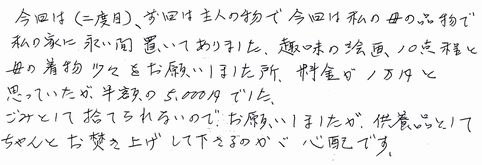 今回は(二度目)、前回は主人の物で今回は私の母の品物で
私の家に永い間置いてありました、趣味の絵画、10点程と
母の着物少々をお願いしました所、料金が1万円と
思っていたが半額の5,000円でした、
ごみとして捨てられないので、お願いしましたが、供養品として
ちゃんとお焚き上げして下さるのかが心配です。